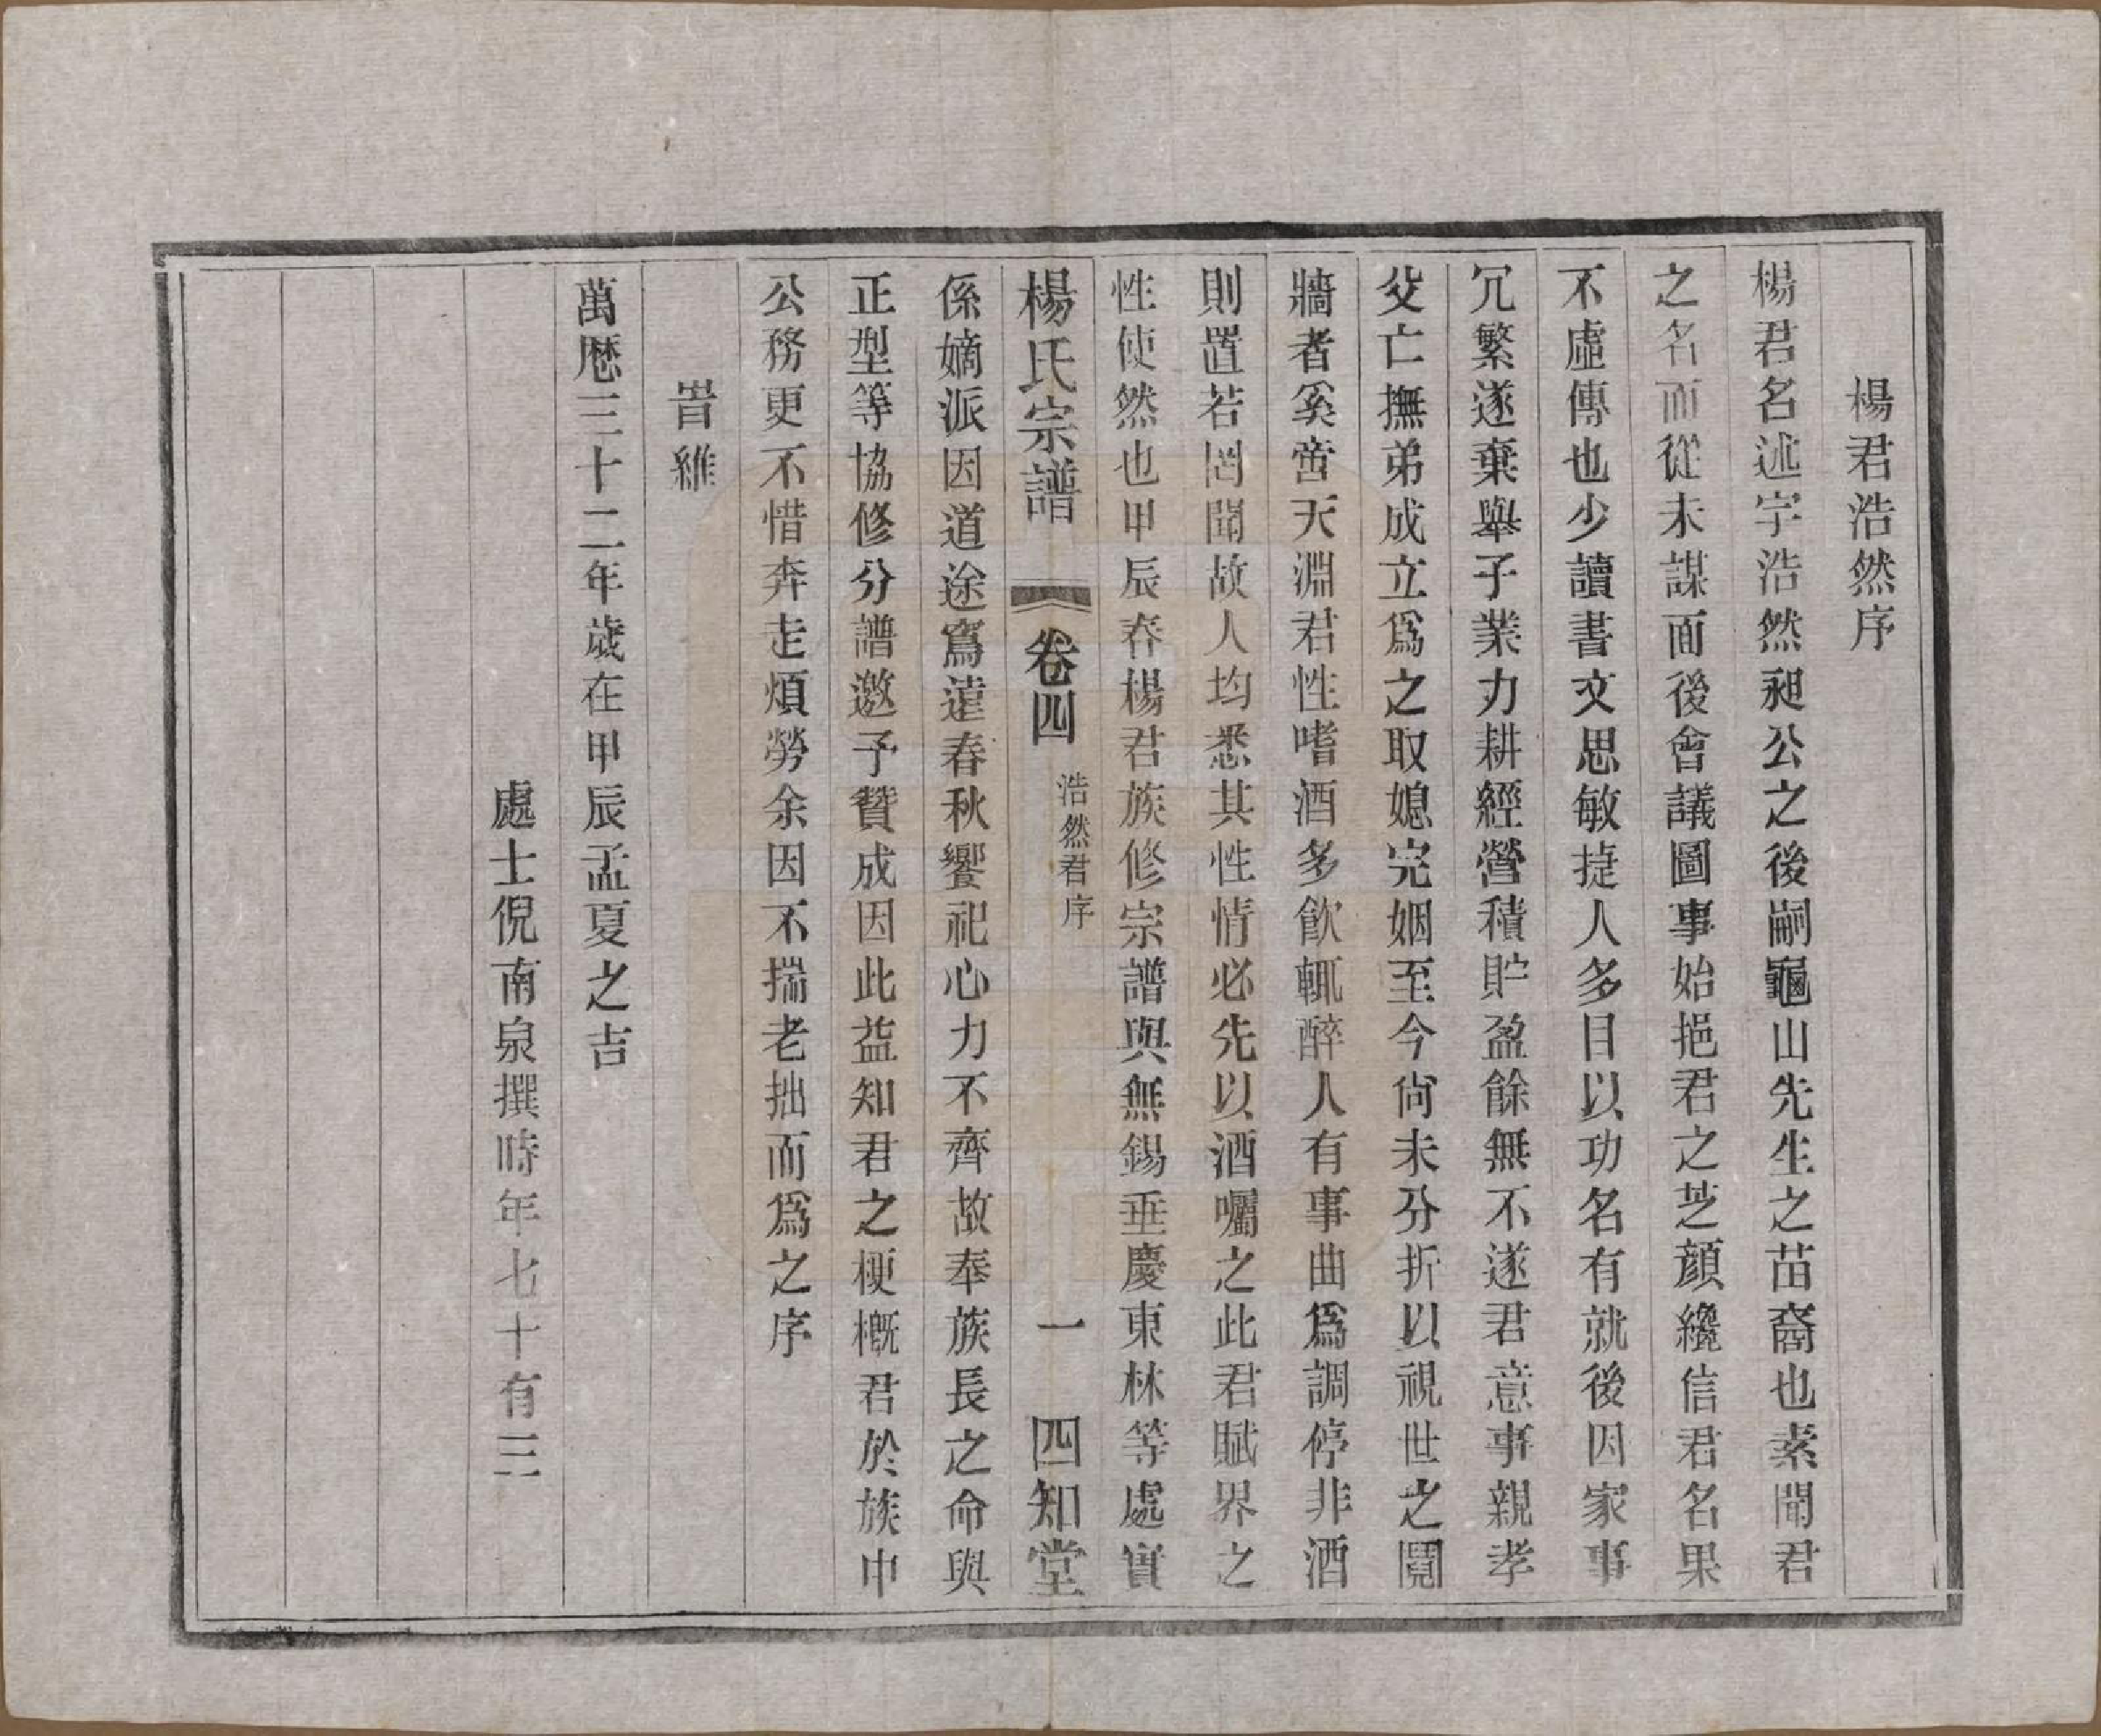 楊君浩然序
楊君名述字浩然昶公之後嗣龜山先生之苗裔也素聞君
之名而從未謀面後會議圖事始挹君之芝顔纔信君名果
不虛傳也少讀書文思敏捷人多目以功名有就後因家事
冗繁遂棄舉子業力耕經營積貯盈餘無不遂君意事親孝
父亡撫弟成立爲之取媳完姻至今尙未分折以視世之鬩
牆者奚啻天淵君性嗜酒多飮輒醉人有事曲爲調停非酒
則置若罔聞故人均悉其性情必先以酒囑之此君賦界之
性使然也甲辰春楊君族修宗譜與無錫垂慶東林等處實
楊氏宗譜 卷四 浩然君序 一 四知堂
係嫡派因道途窵遠春秋饗祀心力不齊故奉族長之命與
正型等協修分譜邀予贊成因此益知君之梗槪君於族中
公務更不惜奔走煩勞余因不揣老拙而爲之序
旹維
萬厯三十二年歲在甲辰孟夏之吉
處士倪南泉撰時年七十有三